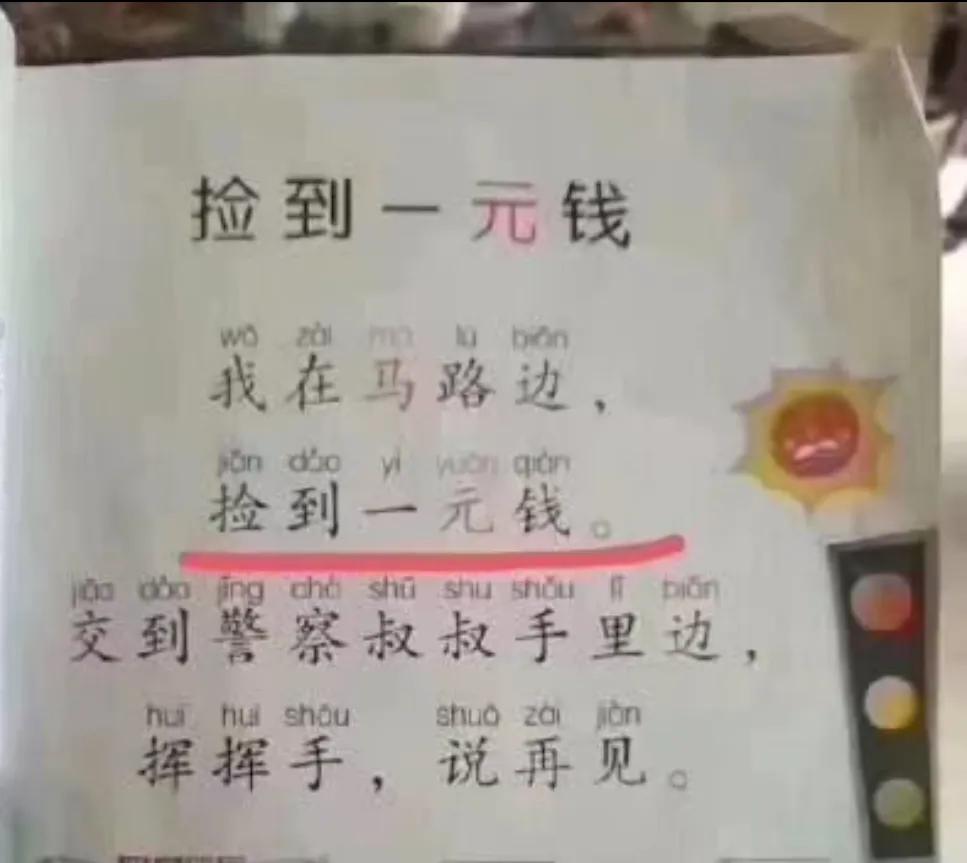 捡到一元钱
wǒ zài mǎ lù biān
我在马路边，
jiǎn dào yì yuán qián
捡到一元钱。
jiāo dào jǐng chá shū shu shǒu lǐ biān
交到警察叔叔手里边，
huī huī shǒu shuō zài jiàn
挥挥手，说再见。